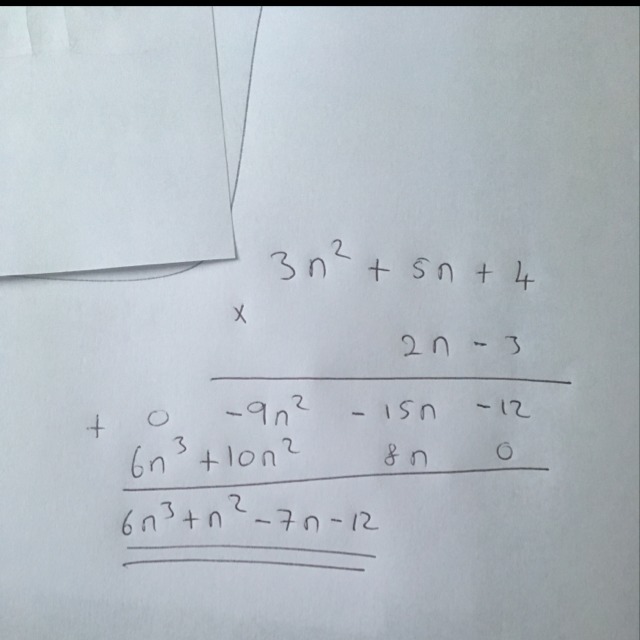 3n² + 5n + 4
×
2n - 3
+ 0 -9n² - 15n -12
6n³ +10n² 8n 0
6n³ + n² - 7n - 12